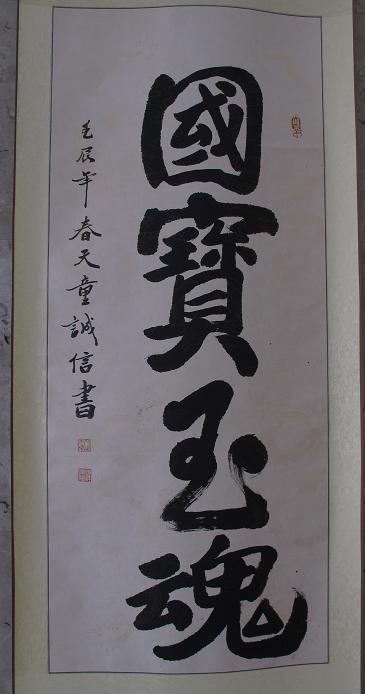 國寶玉魂
壬辰年春天童誠信書